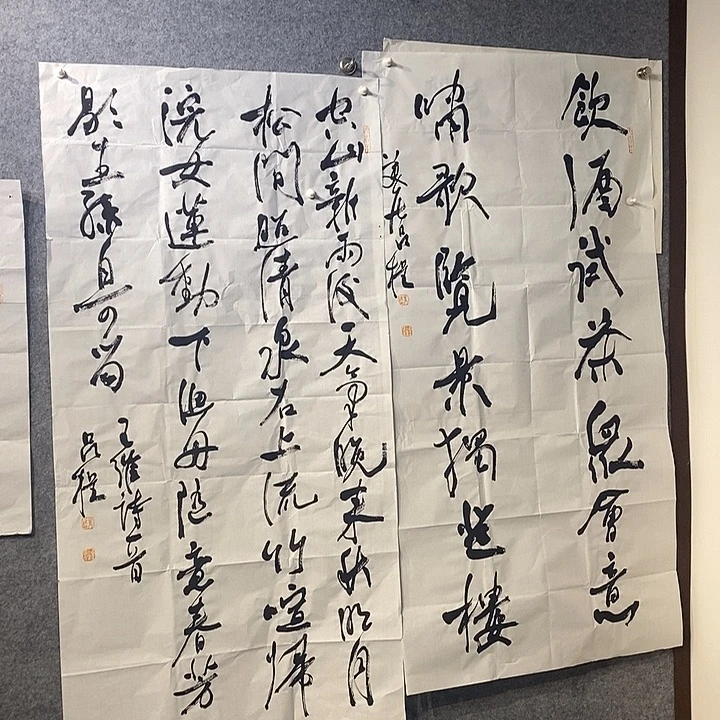 飲酒試茶衆會意
嘯歌覽景獨登樓
呂程
空山新雨後天氣晚來秋明月
松間照清泉石上流竹喧歸
浣女蓮動下漁舟隨意春芳
歇王孫自可留
王維詩一首
呂程